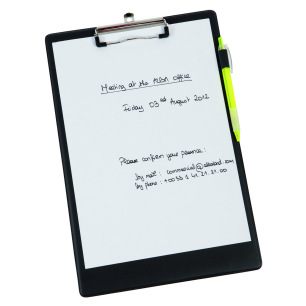 Meeting at the office
Friday 03rd August 2012
Please confirm your presence:
by mail: commercial@
by phone: +00 33 1 41 21 21 00